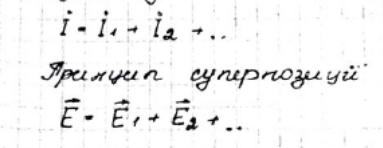 i = i₁ + i₂ + ..
Принцип суперпозиції
E⃗ = E⃗₁ + E⃗₂ + ..